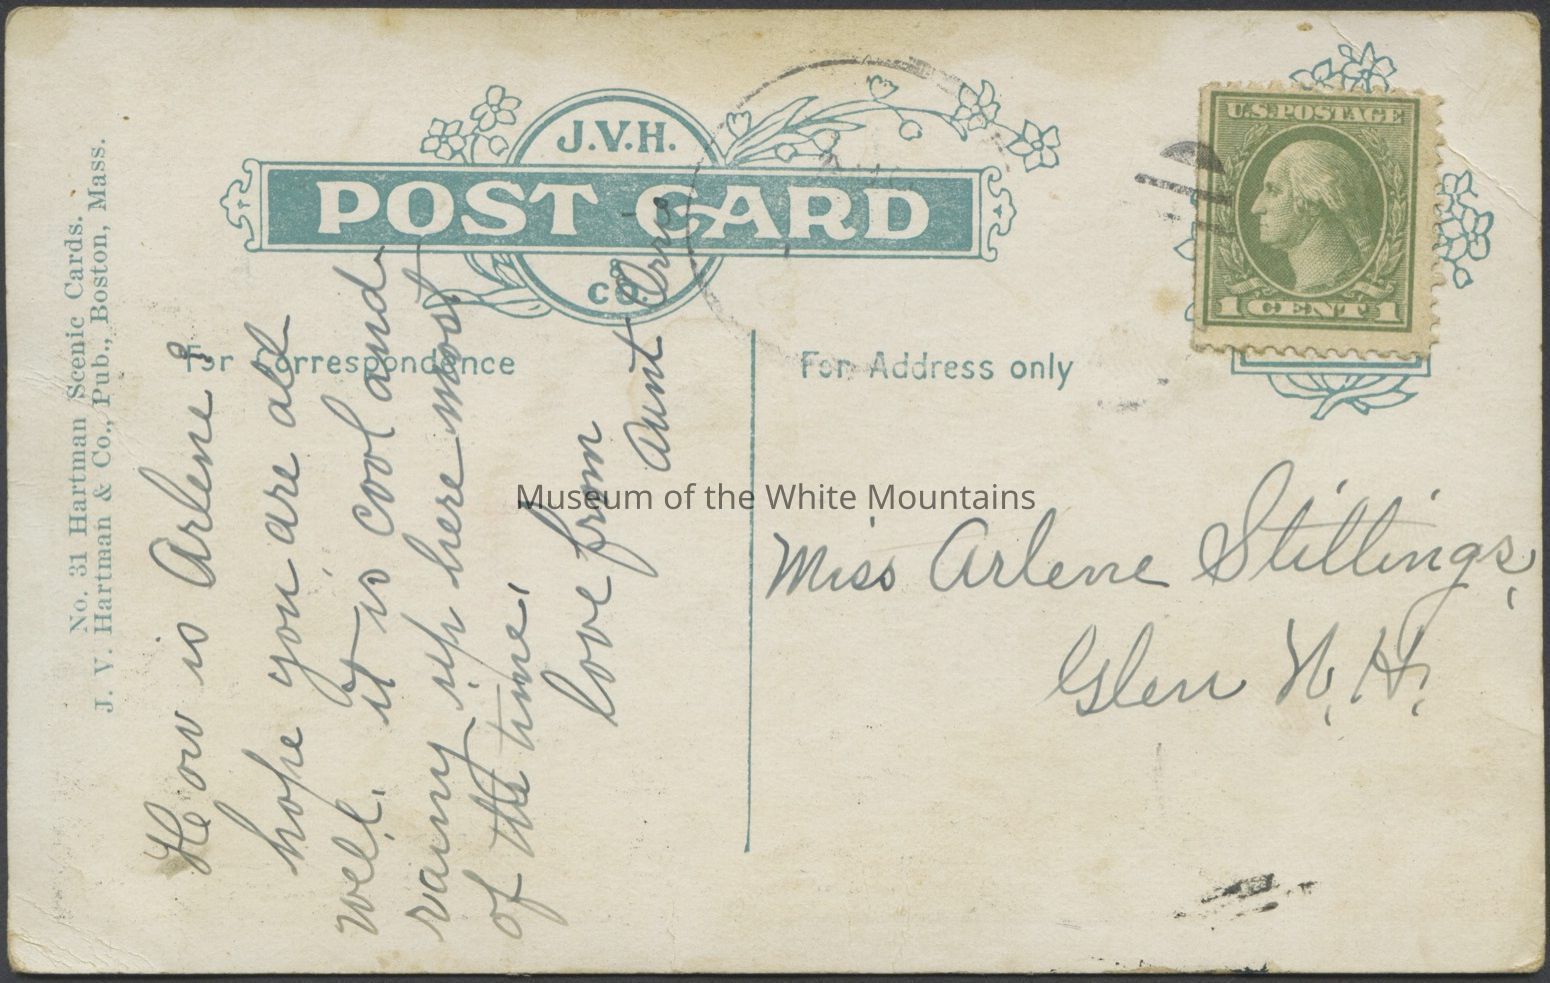 No. 31 Hartman Scenic Cards.
J. V. Hartman & Co., Pub., Boston, Mass.
J.V.H.
POST CARD
CO.
For Correspondence
For Address only
U.S. POSTAGE
1 CENT 1
How is Arlene?
hope you are all
well. it is cool and
rainy up here most
of the time.
love from
Aunt Orrie
Miss Arlene Stillings,
Glen N. H.
Museum of the White Mountains